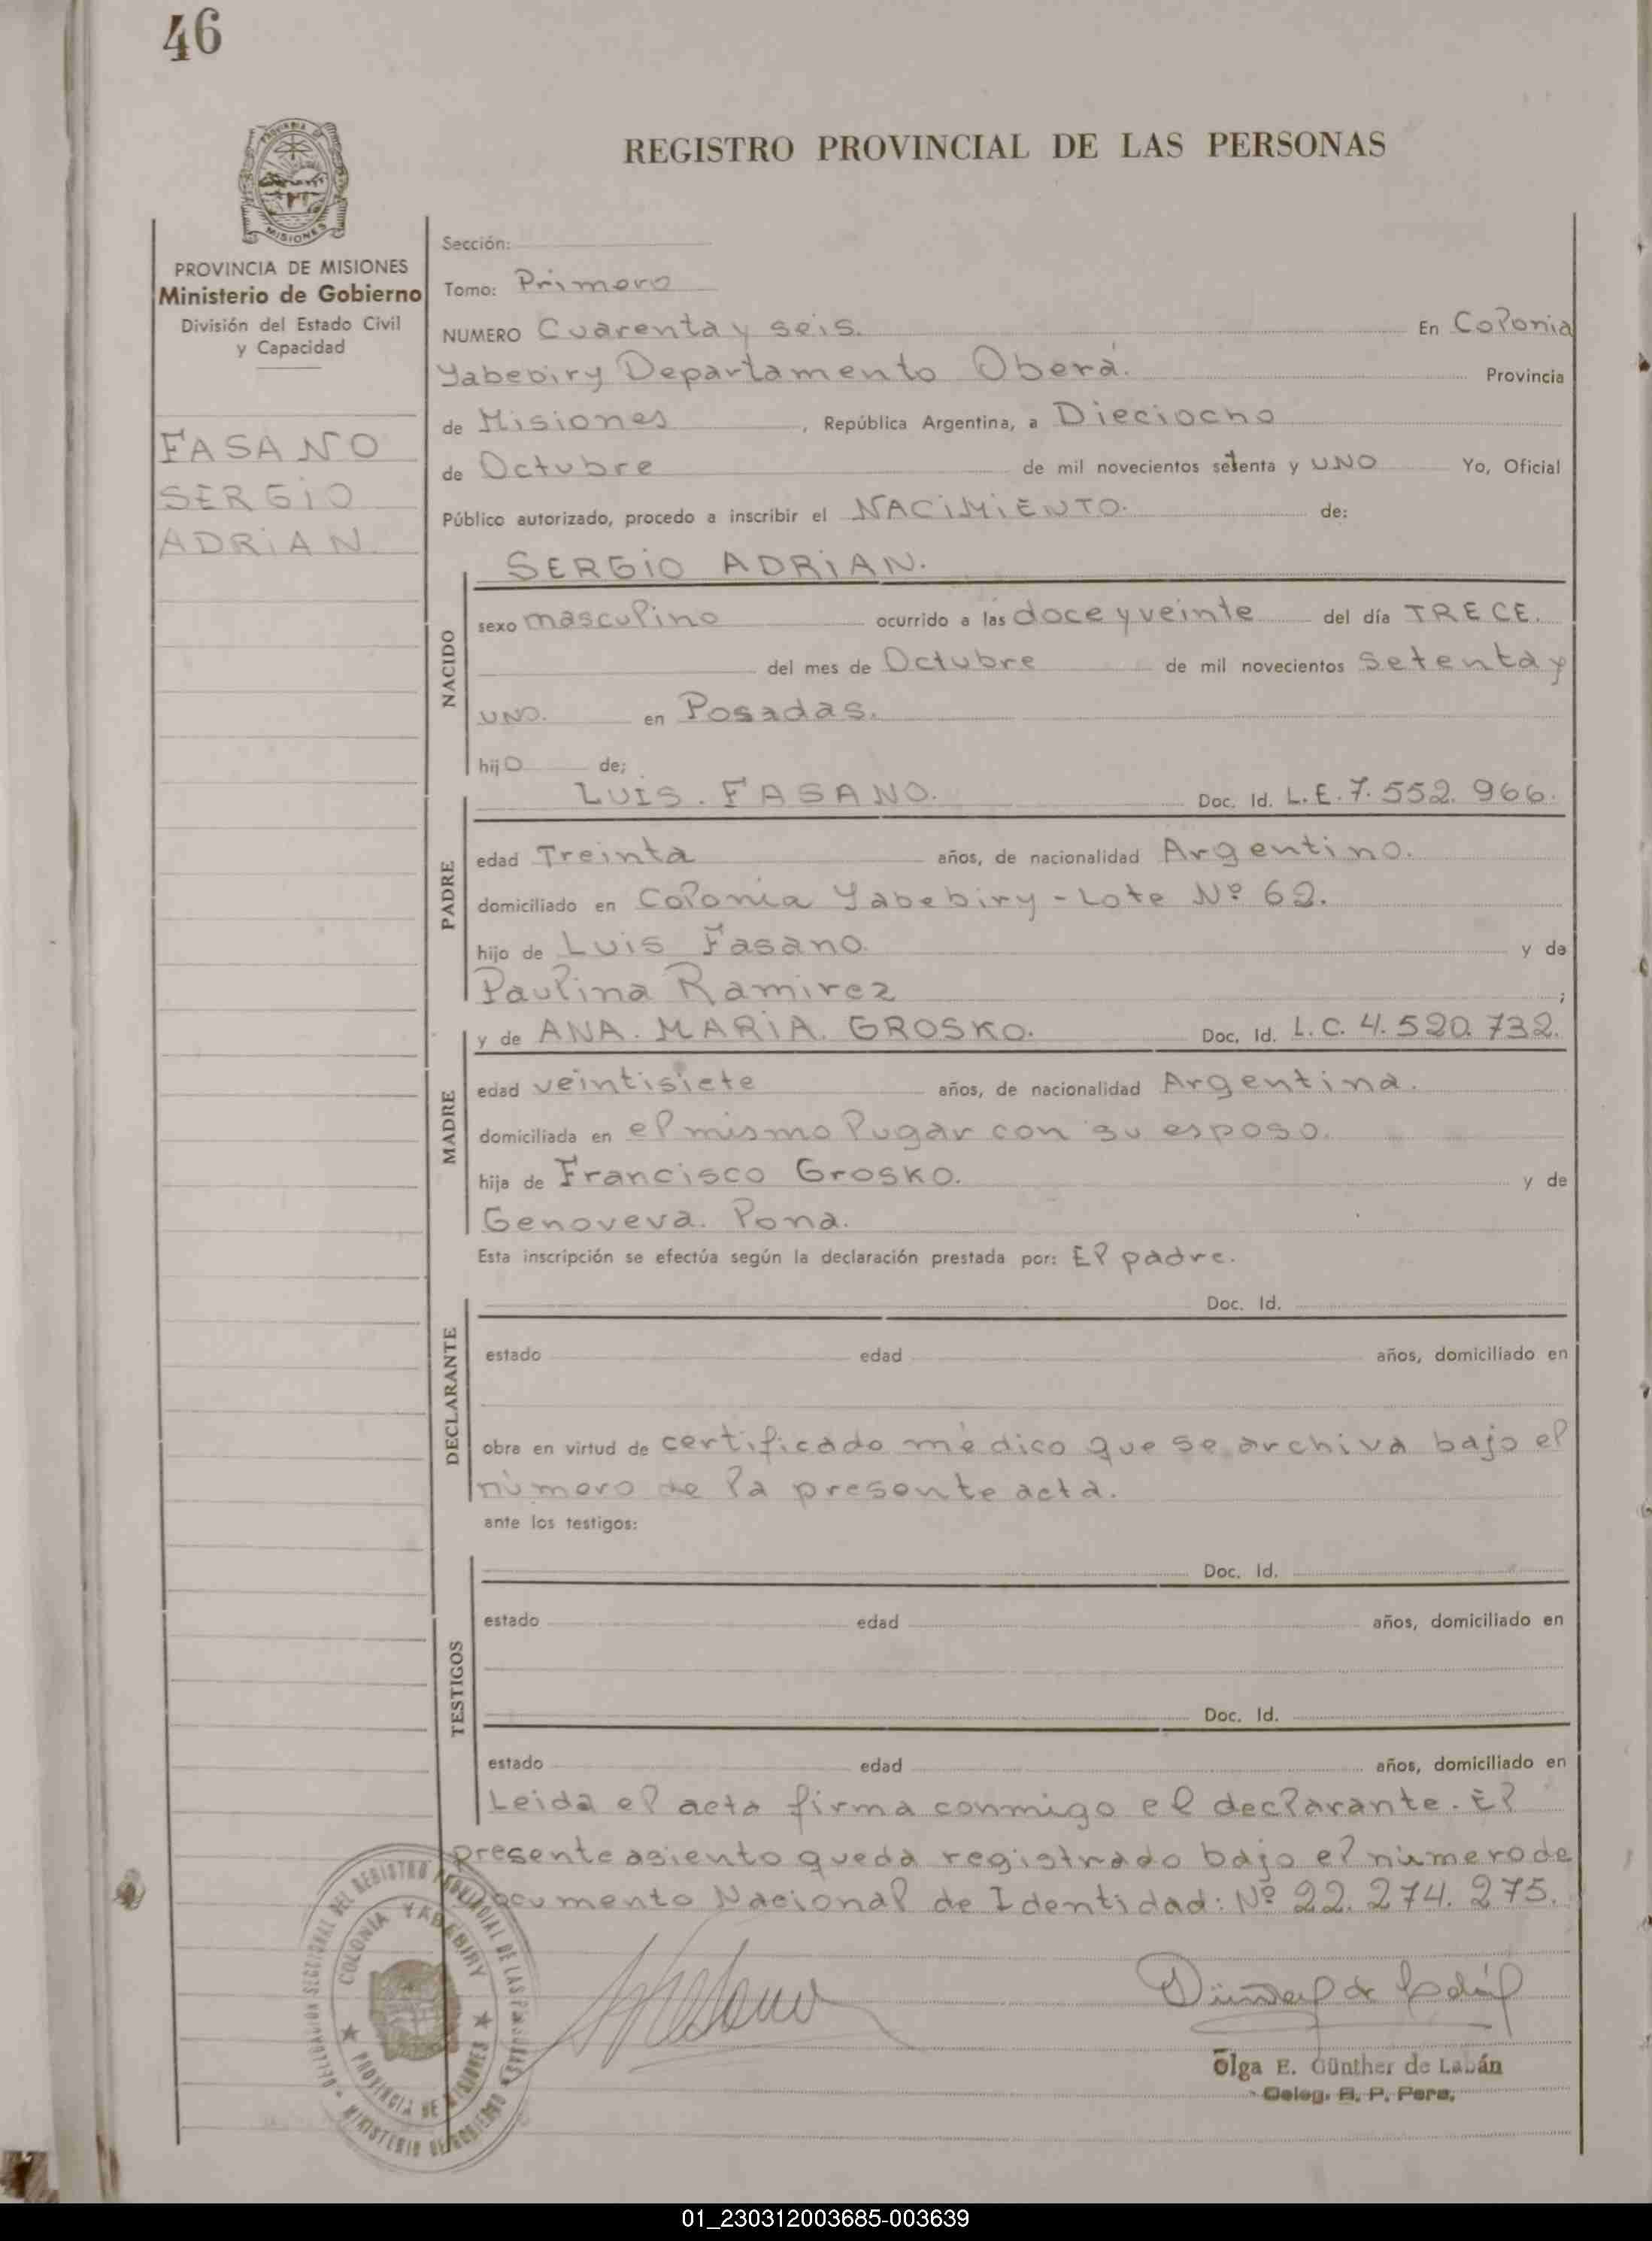 46
REGISTRO PROVINCIAL DE LAS PERSONAS
PROVINCIA DE MISIONES
Ministerio de Gobierno
División del Estado Civil
y Capacidad
FASANO
SERGiO
ADRiAN.
Sección:
Tomo: Primero
NUMERO Cuarenta y seis. En Colonia
Yabebiry Departamento Oberá. Provincia
de Misiones, República Argentina, a Dieciocho
de Octubre de mil novecientos setenta y UNO Yo, Oficial
Público autorizado, procedo a inscribir el NACiMiENTO. de:
SERGiO ADRiAN.
NACIDO
sexo masculino ocurrido a las doce y veinte del día TRECE.
del mes de Octubre de mil novecientos setenta y
UNO. en Posadas.
hijO de;
LUIS. FASANO. Doc. Id. L.E. 7. 552. 966.
PADRE
edad Treinta años, de nacionalidad Argentino.
domiciliado en Colonia Yabebiry - Lote Nº 62.
hijo de Luis Fasano. y de
Paulina Ramirez ;
y de ANA. MARiA. GROSKO. Doc. Id. L.C. 4. 520. 732.
MADRE
edad veintisiete años, de nacionalidad Argentina.
domiciliada en el mismo lugar con su esposo.
hija de Francisco Grosko. y de
Genoveva. Pona.
Esta inscripción se efectúa según la declaración prestada por: El padre.
DECLARANTE
Doc. Id.
estado edad años, domiciliado en
obra en virtud de certificado médico que se archiva bajo el
número de la presente acta.
ante los testigos:
TESTIGOS
Doc. Id.
estado edad años, domiciliado en
Doc. Id.
estado edad años, domiciliado en
Leida el acta firma conmigo el declarante. El
presente asiento queda registrado bajo el número de
Documento Nacional de Identidad: Nº 22. 274. 275.
DELEGACION SECCIONAL DEL REGISTRO PROVINCIAL DE LAS PERSONAS
COLONIA YABEBIRY
PROVINCIA DE MISIONES
MINISTERIO DE GOBIERNO
Olga E. Günther de Labán
Deleg. R. P. Pers.
01_230312003685-003639